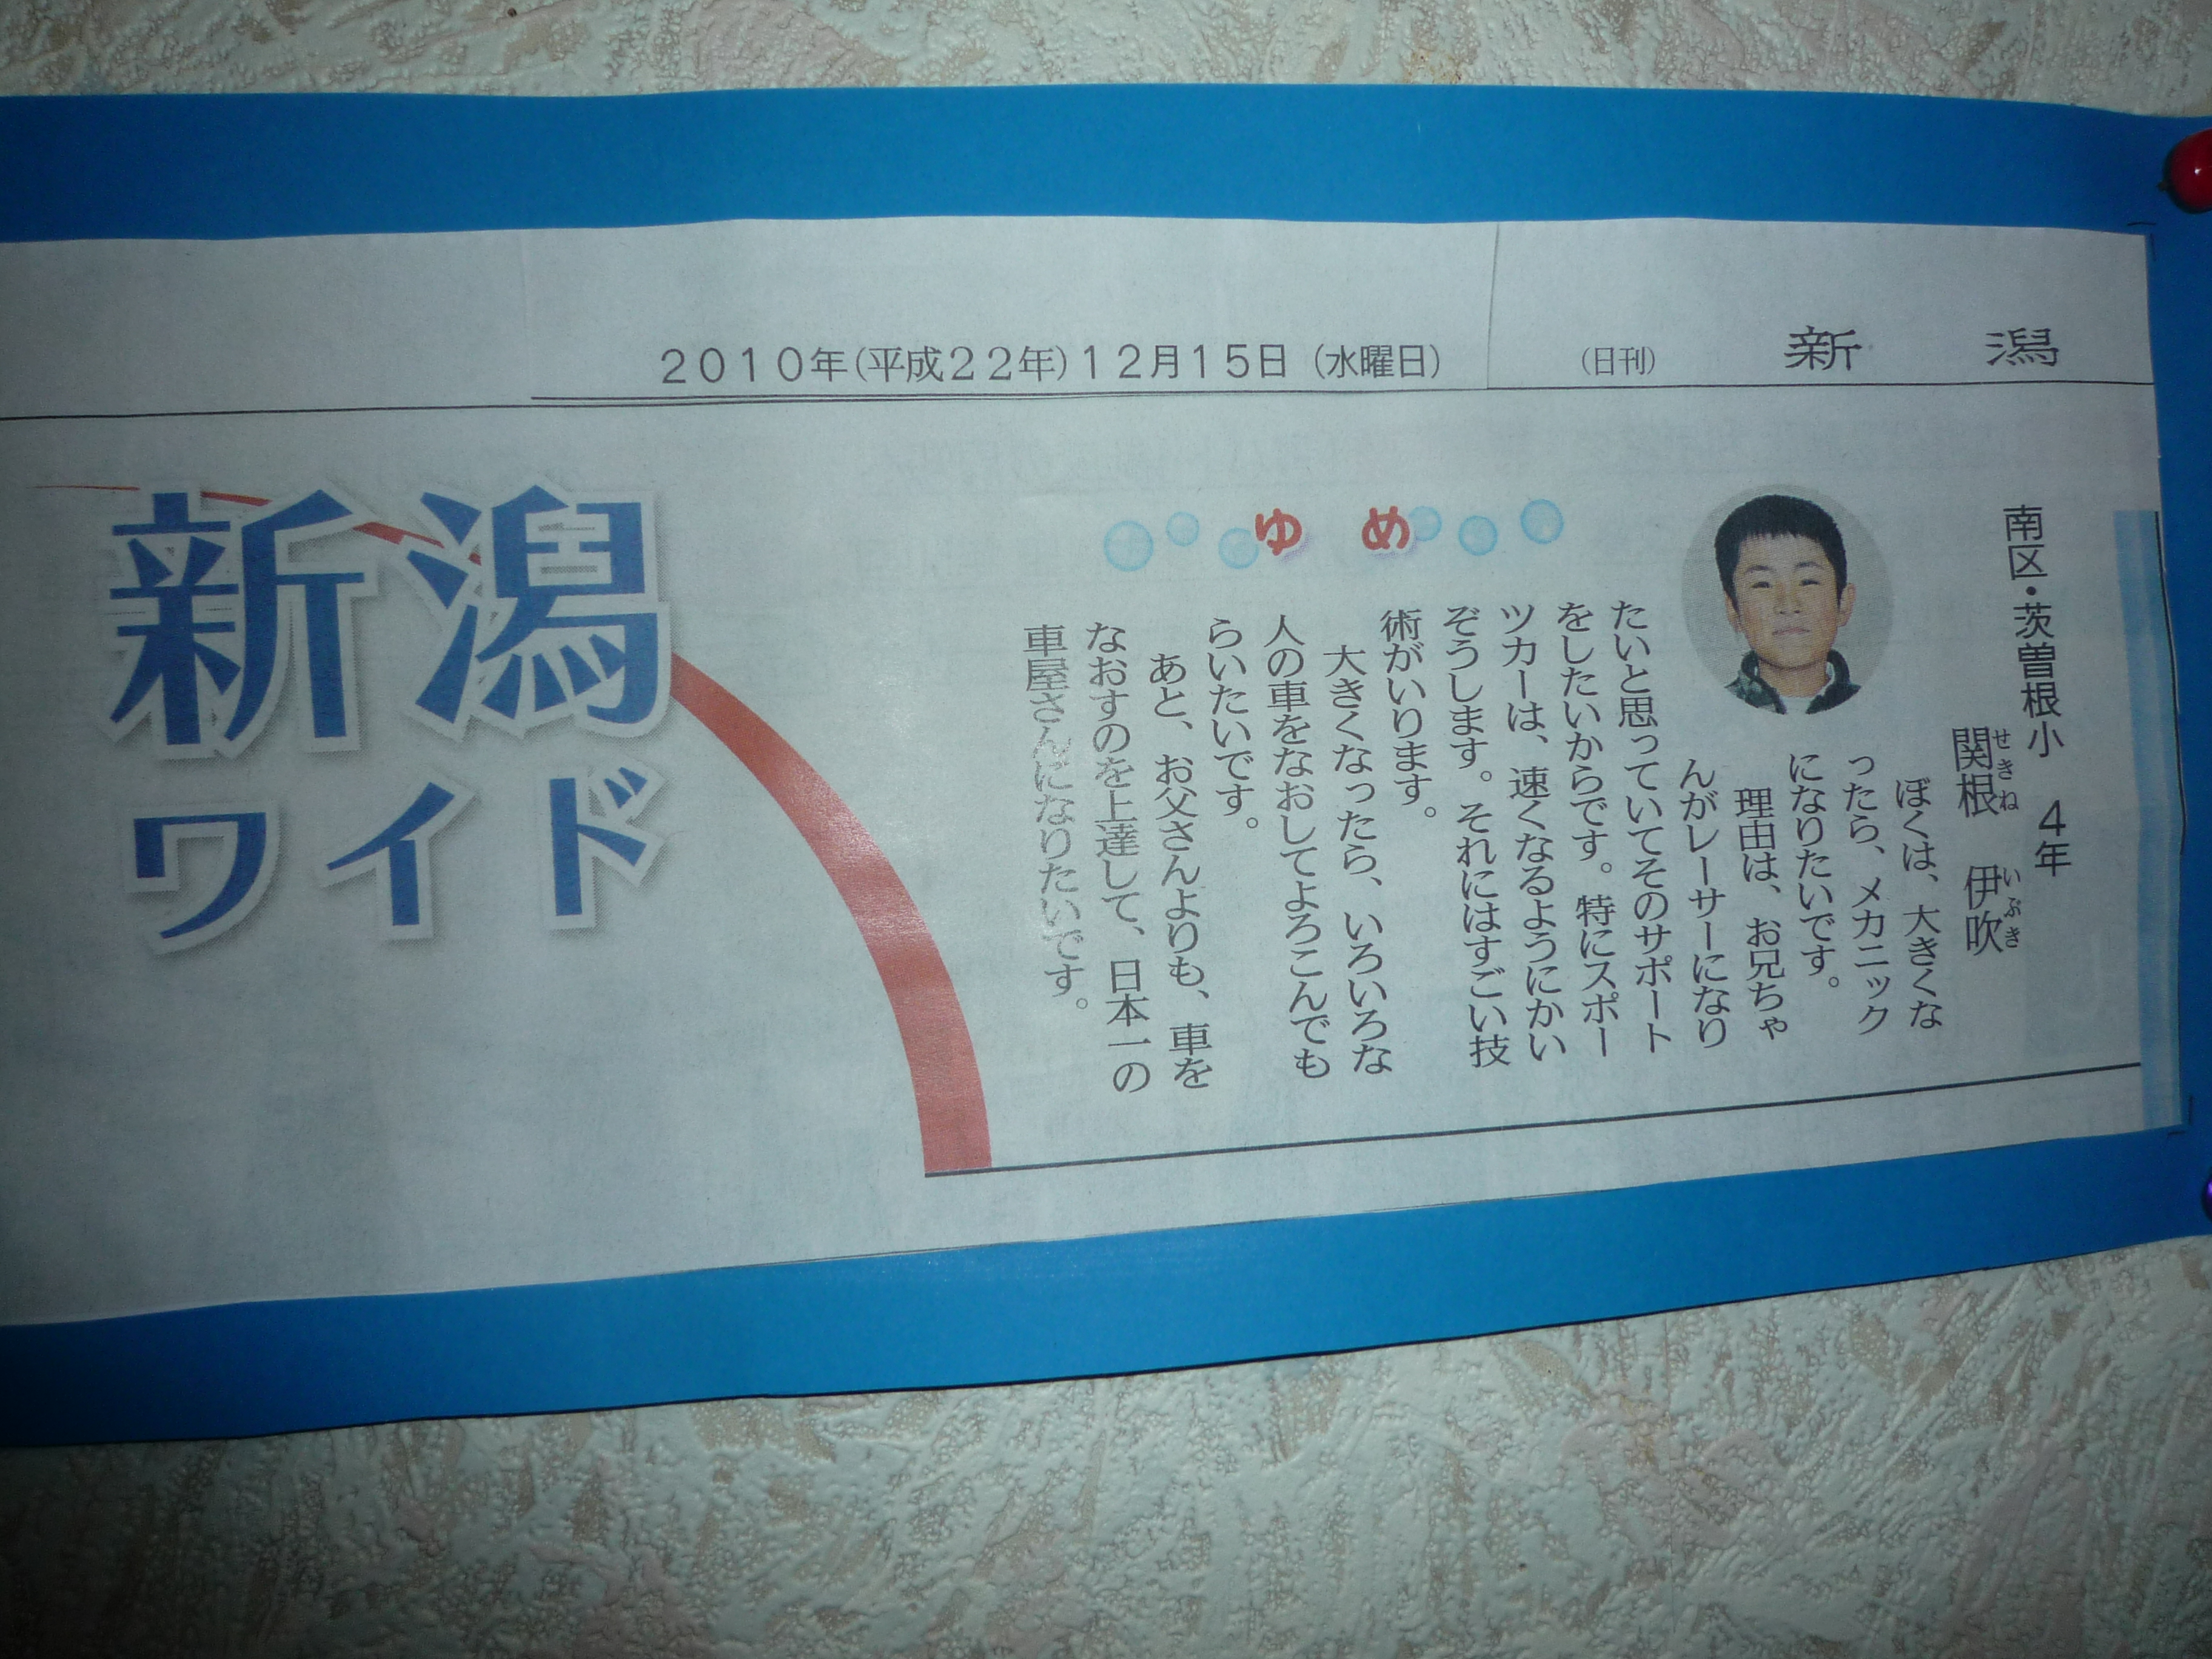 新　潟
（日刊）
２０１０年（平成２２年）１２月１５日（水曜日）
南区・茨曽根小　４年
関根　伊吹
せきね　いぶき
ぼくは、大きくな
ったら、メカニック
になりたいです。
理由は、お兄ちゃ
んがレーサーになり
たいと思っていてそのサポート
をしたいからです。特にスポー
ツカーは、速くなるようにかい
ぞうします。それにはすごい技
術がいります。
大きくなったら、いろいろな
人の車をなおしてよろこんでも
らいたいです。
あと、お父さんよりも、車を
なおすのを上達して、日本一の
車屋さんになりたいです。
ゆめ
新潟
ワイド